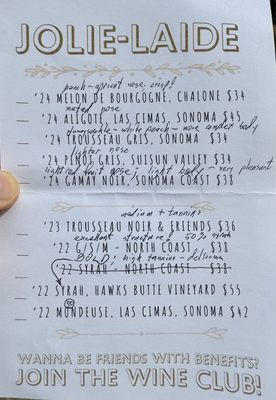 JOLIE-LAIDE
peach-apricot nose, crisp!
'24 MELON DE BOURGOGNE, CHALONE $34
muted nose
'24 ALIGOTE, LAS CIMAS, SONOMA $45
Honeysuckle - white peach - more complex body
'24 TROUSSEAU GRIS, SONOMA $34
lighter nose
'24 PINOT GRIS, SUISUN VALLEY $34
light red fruit nose, light body - very pleasant
'24 GAMAY NOIR, SONOMA COAST $38
medium + tannins
'23 TROUSSEAU NOIR & FRIENDS $36
excellent structure! 50% syrah
'22 G/S/M - NORTH COAST $38
BOLD! high tannins - delicious
'22 SYRAH - NORTH COAST $38
'22 SYRAH, HAWKS BUTTE VINEYARD $55
'22 MONDEUSE, LAS CIMAS, SONOMA $42
WANNA BE FRIENDS WITH BENEFITS?
JOIN THE WINE CLUB!